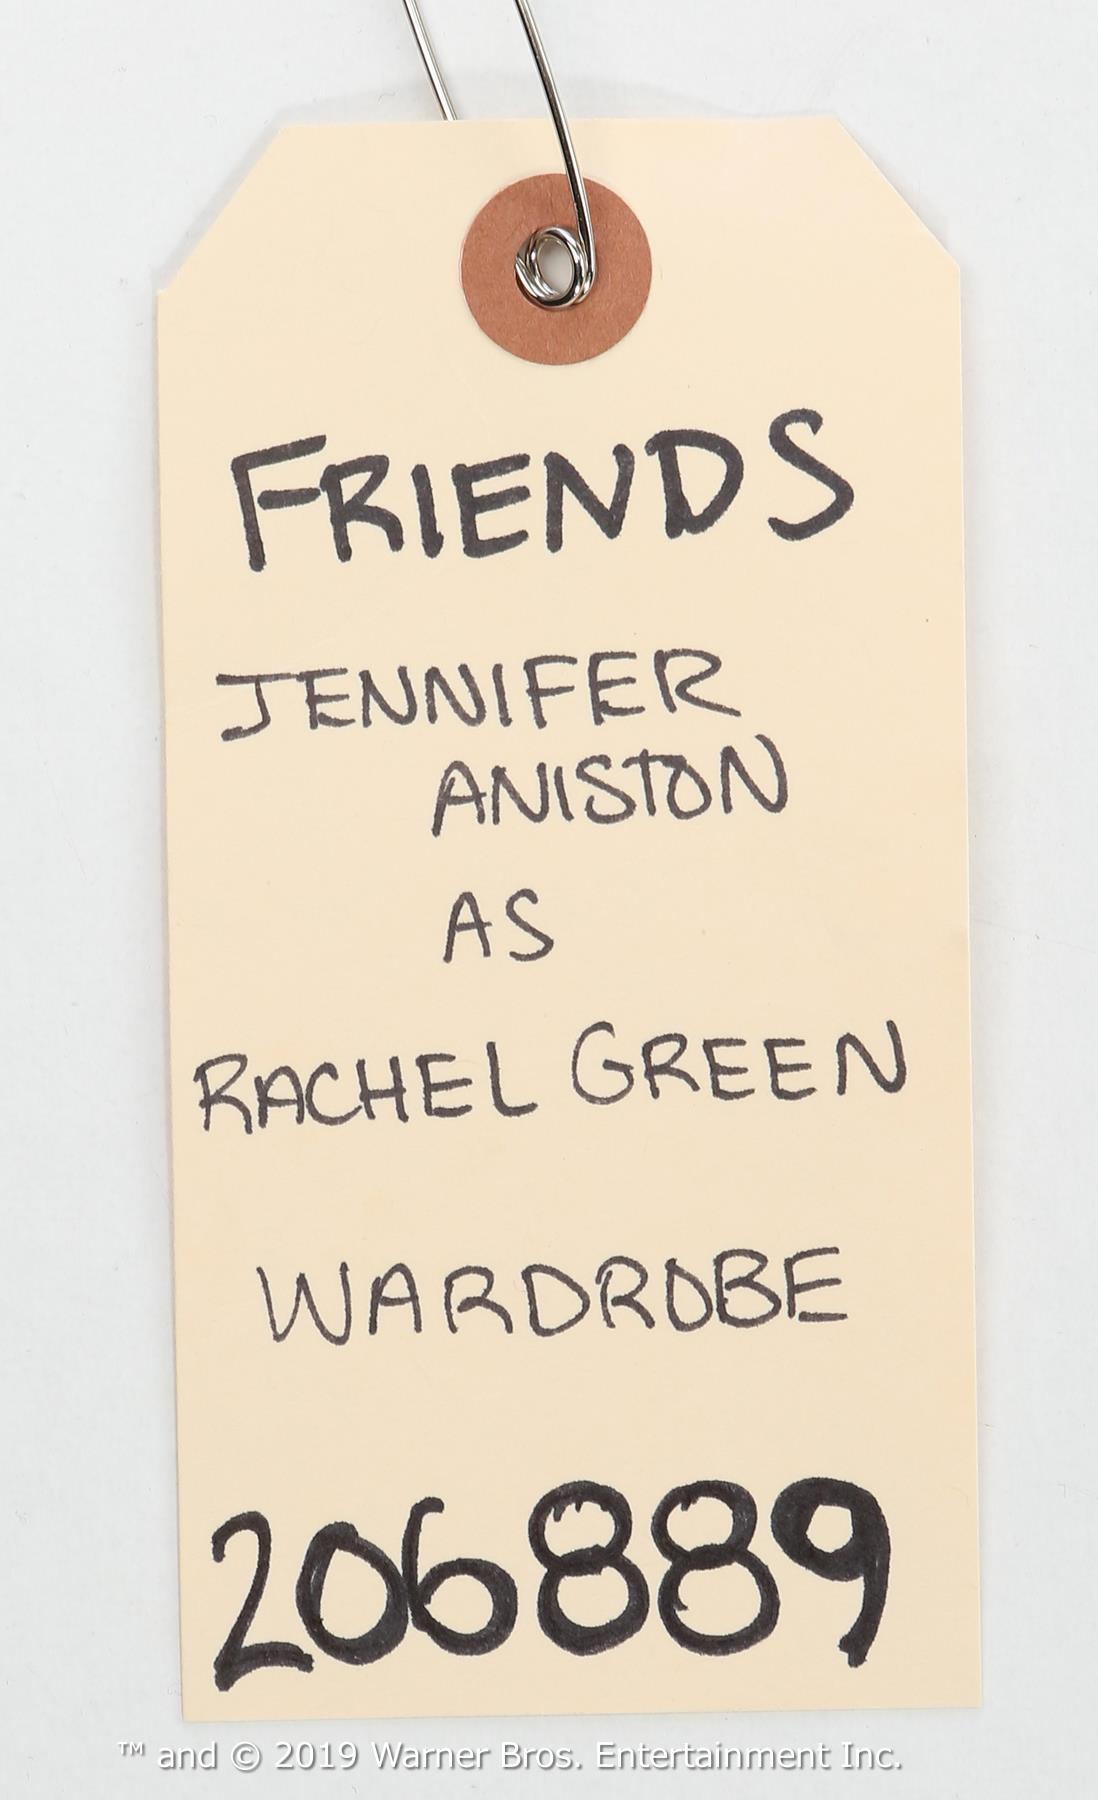 FRIENDS
JENNIFER
ANISTON
AS
RACHEL GREEN
WARDROBE
206889
™ and © 2019 Warner Bros. Entertainment Inc.